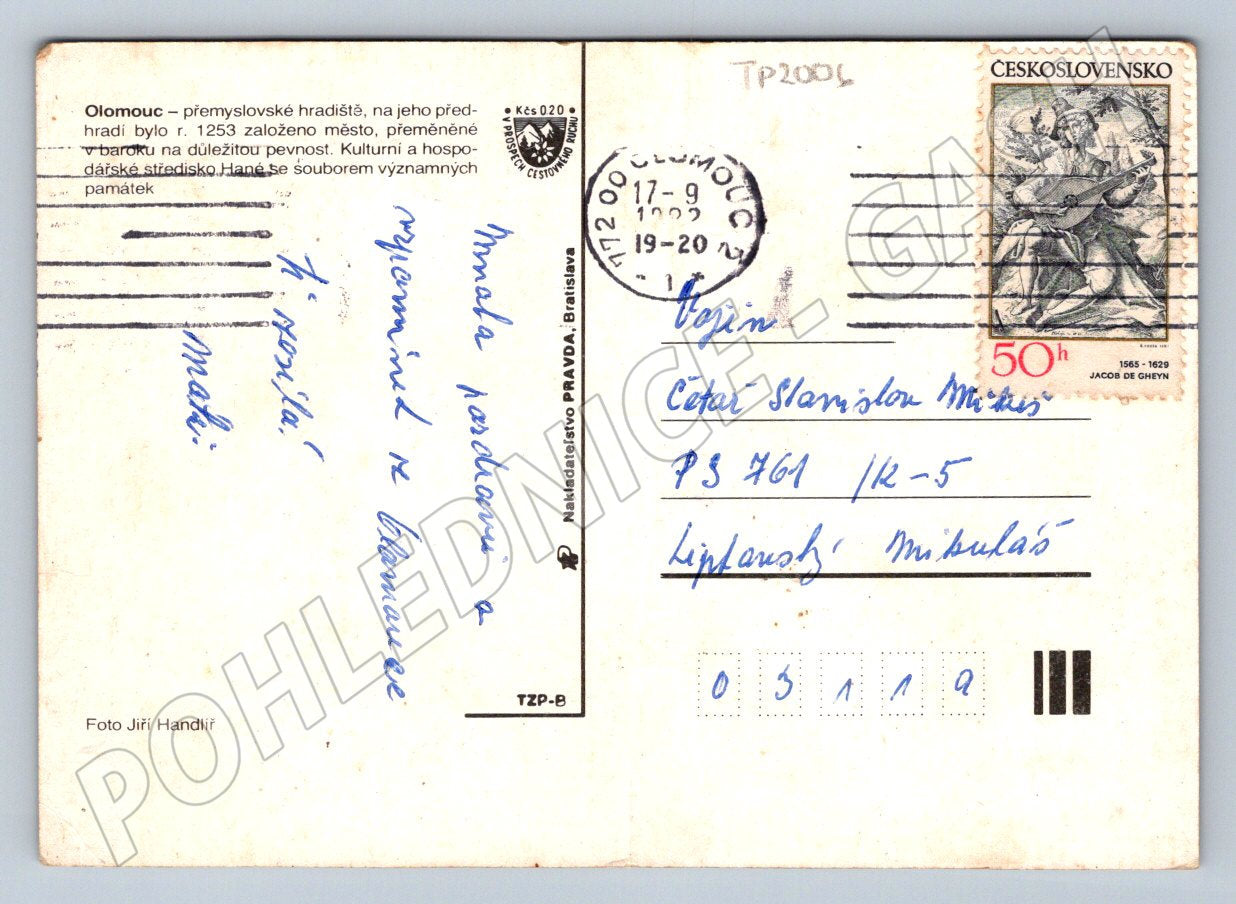 Olomouc – přemyslovské hradiště, na jeho před-
hradí bylo r. 1253 založeno město, přeměněné
v baroku na důležitou pevnost. Kulturní a hospo-
dářské středisko Hané se souborem významných
památek
• Kčs 020 •
V PROSPĚCH CESTOVNÉHO RUCHU
Mnoho pozdravů a
vzpomínek z Olomouce
Ti posílá
Foto Jiří Handlíř
Nakladateľstvo PRAVDA, Bratislava
TZP-B
TP2006
772 00 OLOMOUC 2
17-9
19-20
- 1 *
ČESKOSLOVENSKO
50h
1565 - 1629
JACOB DE GHEYN
Vojín
Četař Stanislav Mikeš
PS 761 /K-5
Liptovský Mikuláš
03119
POHLEDNICE - GACH